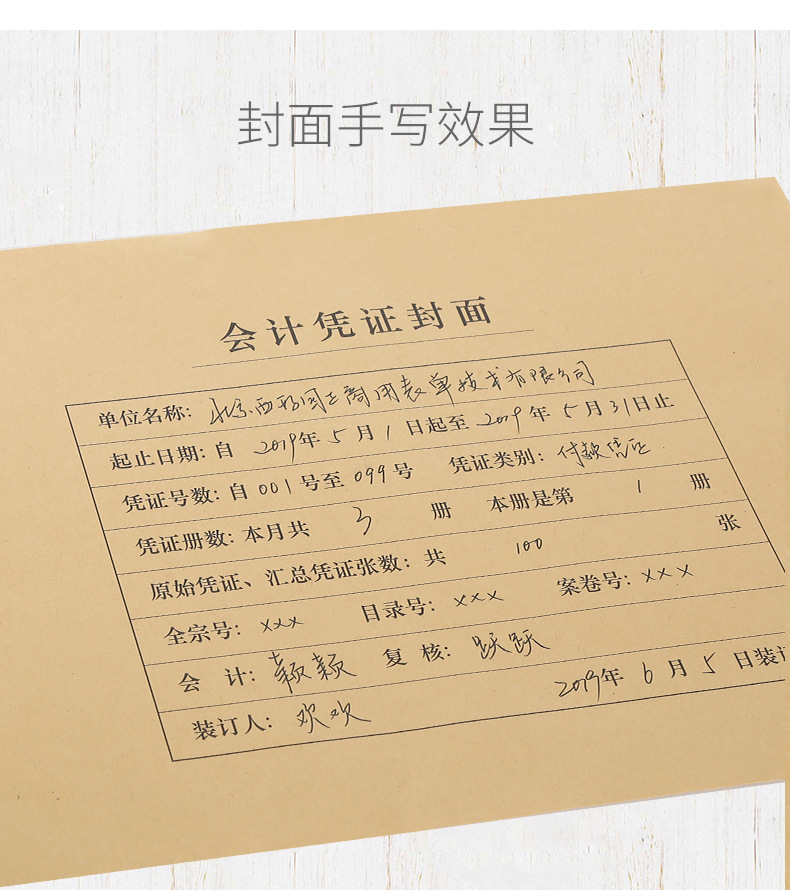 封面手写效果
会计凭证封面
单位名称: 北京西玛国正商用表单技术有限公司
起止日期: 自 2019年 5 月 1 日起至 2019 年 5 月 31日止
凭证号数: 自 001 号至 099 号 凭证类别: 付款凭证
凭证册数: 本月共 3 册 本册是第 1 册
原始凭证、汇总凭证张数: 共 100 张
全宗号: xxx 目录号: xxx 案卷号: xxx
会 计: 颖颖 复 核: 跃跃
装订人: 欢欢 2019年 6 月 5 日装订